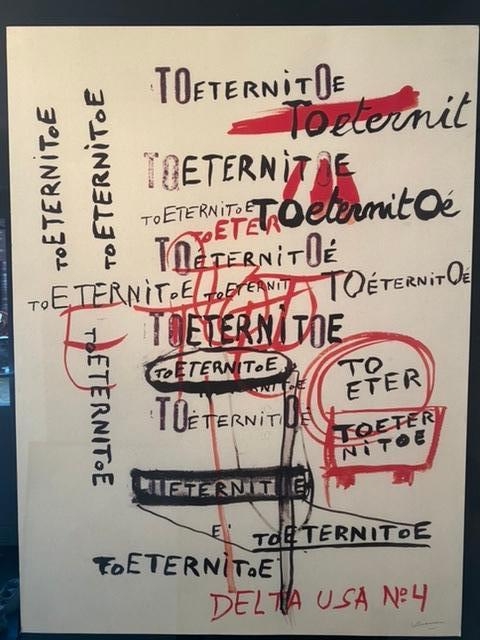 TOETERNITOE
TOeternit
TOETERNITOE
TOETERNITOE
TOeternitOé
TOETER
TOÉTERNITOÉ
TOETERNITOE
TOETERNIT
TOÉTERNITOÉ
TOETERNITOE
TOETERNITOE
TOETERNITOE
TOETERNITOE
TOETERNITOE
TO
ETER
TOETERNITOE
TOETER
NITOE
ETERNIT E
E'
TOETERNITOE
TOETERNITOE
DELTA USA No 4